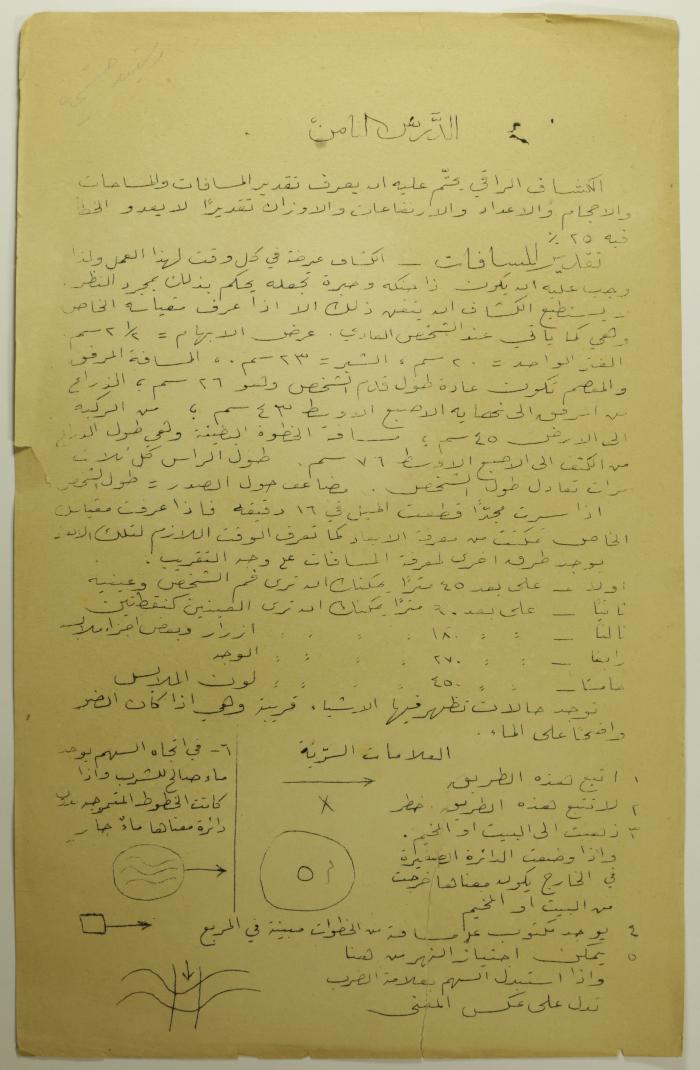 ٤ الدَّرس الثامن
الكشاف الراقي يحتّم عليه ان يعرف تقدير المسافات والمساحات
والاحجام والاعداد والارتفاعات والاوزان تقديرًا لا يعدو الخطأ
فيه ٢٥ ٪
تقدير المسافات ــ الكشاف عرضة في كل وقت لهذا العمل ولذا
وجب عليه ان يكون ذا حنكه وخبرة تجعله يحكم بذلك بمجرد النظر.
يستطيع الكشاف ان يتقن ذلك الا اذا عرف مقياسه الخاص
وهي كما يأتي عند الشخص العادي. عرض الابهام = ٢½ سم
الفتر الواحد = ٢٠ سم، الشبر = ٢٣ سم، المسافة المرفق
والمعصم تكون عادة طول قدم الشخص وهو ٢٦ سم، الذراع
من المرفق الى نهايه الاصبع الاوسط ٤٣ سم، من الركبة
الى الارض ٤٥ سم، مسافة الخطوة البطيئة وهي طول الذراع
من الكتف الى الاصبع الاوسط ٧٦ سم. طول الراس كل ثلاث
مرات تعادل طول الشخص. مضاعف حول الصدر = طول الشخص
اذا سرت مجدًّا قطعت الميل في ١٦ دقيقه فاذا عرفت مقياسك
الخاص تمكنت من معرفة الابعاد كما تعرف الوقت اللازم لتلك الابعاد
يوجد طرق اخرى لمعرفة المسافات على وجه التقريب.
اولا ــ على بعد ٤٥ مترًا يمكنك ان ترى فم الشخص وعينيه
ثانيًا ــ على بعد ٩٠ مترًا يمكنك ان ترى العينين كنقطتين
ثالثًا ــ " " ١٨٠ " " " ازرار وبعض اجزاء ملابسه
رابعًا ــ " " ٢٧٠ " " " الوجه
خامسًا ــ " " ٤٥٠ " " " لون الملابس
توجد حالات تظهر فيها الاشياء قريبة وهي اذا كان الضوء
واضحًا على الماء.
العلامات السرّيّة
١ اتبع هذه الطريق
٢ لا تتبع هذه الطريق خطر
٣ ذهبت الى البيت او المخيم.
واذا وضعت الدائرة الصغيرة
في الخارج يكون معناها خرجت
من البيت او المخيم
٤ يوجد مكتوب على مسافة من الخطوات مبينة في المربع
٥ يمكن اجتياز النهر من هنا
واذا استبدل السهم بعلامة الضرب
تدل على عكس المعنى
٦ـ في اتجاه السهم يوجد
ماء صالح للشرب واذا
كانت الخطوط المتموجه بدون
دائرة معناها ماءٌ جارٍ